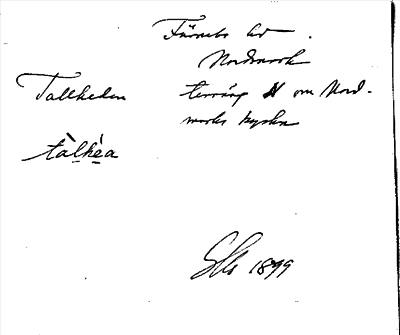 Färnebo hd.
Nordmark
Tallheden terräng N om Nord-
marks kyrka
tàlhéa
1899